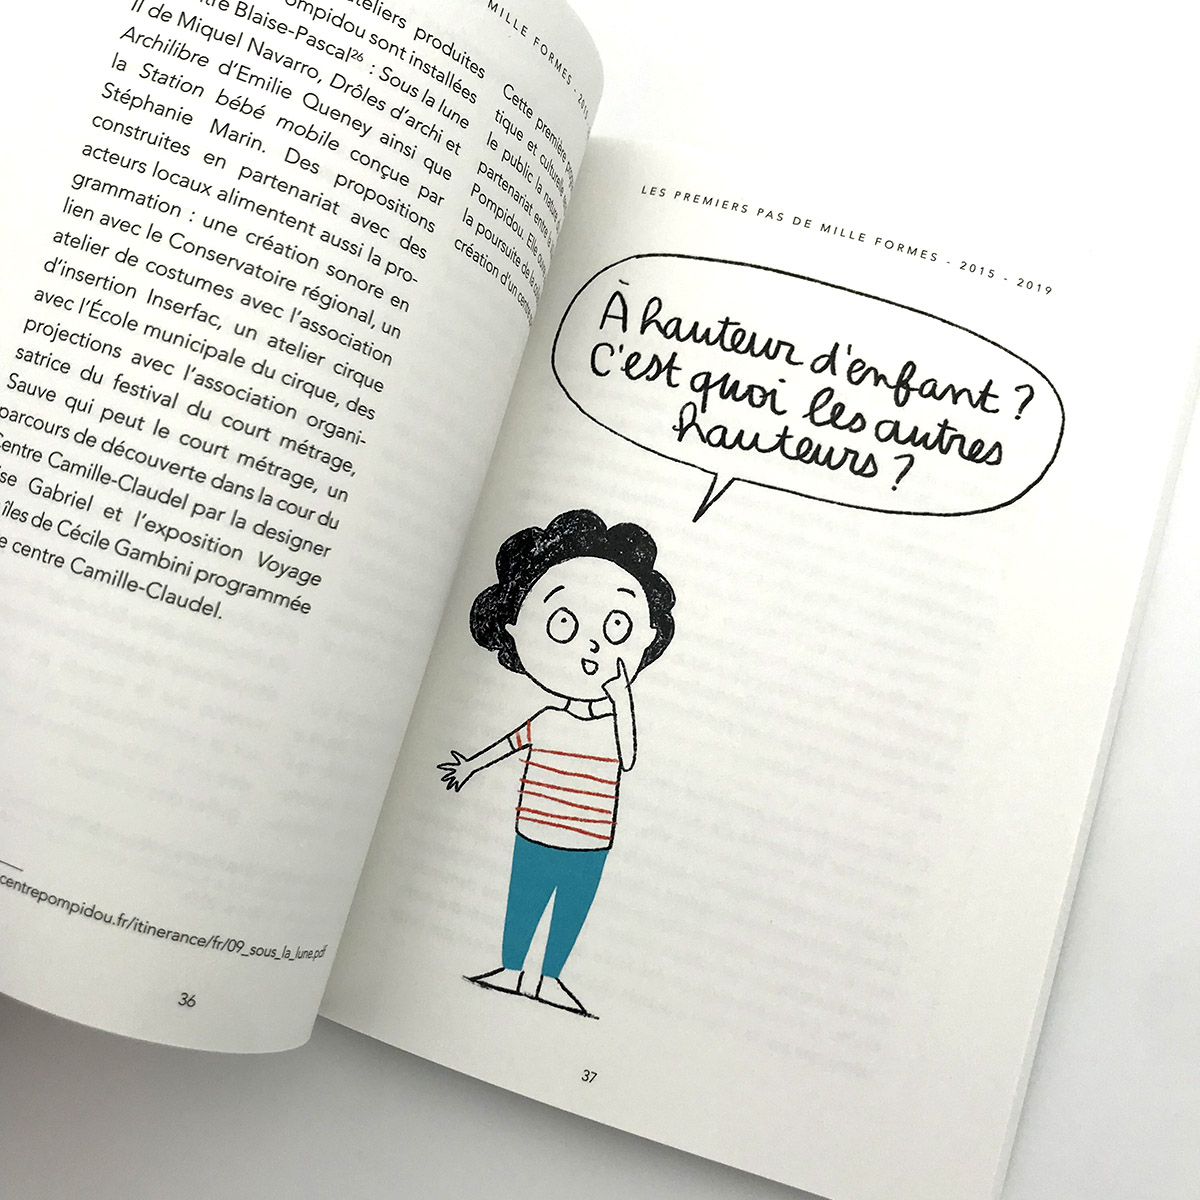 ateliers produites
tre Blaise-Pascal²⁶ : Sous la lune
ompidou sont installées
II de Miquel Navarro, Drôles d'archi et
Archilibre d'Emilie Queney ainsi que
la Station bébé mobile conçue par
Stéphanie Marin. Des propositions
construites en partenariat avec des
acteurs locaux alimentent aussi la pro-
grammation : une création sonore en
lien avec le Conservatoire régional, un
atelier de costumes avec l'association
d'insertion Inserfac, un atelier cirque
avec l'École municipale du cirque, des
projections avec l'association organi-
satrice du festival du court métrage,
Sauve qui peut le court métrage, un
parcours de découverte dans la cour du
Centre Camille-Claudel par la designer
se Gabriel et l'exposition Voyage
îles de Cécile Gambini programmée
e centre Camille-Claudel.
centrepompidou.fr/itinerance/fr/09_sous_la_lune.pdf
36
MILLE FORMES - 2015
Cette première
tique et culturelle
le public la nature
partenariat entre la
Pompidou. Elle
la poursuite de la
création d'un centre
LES PREMIERS PAS DE MILLE FORMES - 2015 - 2019
À hauteur d'enfant ?
C'est quoi les autres
hauteurs ?
37